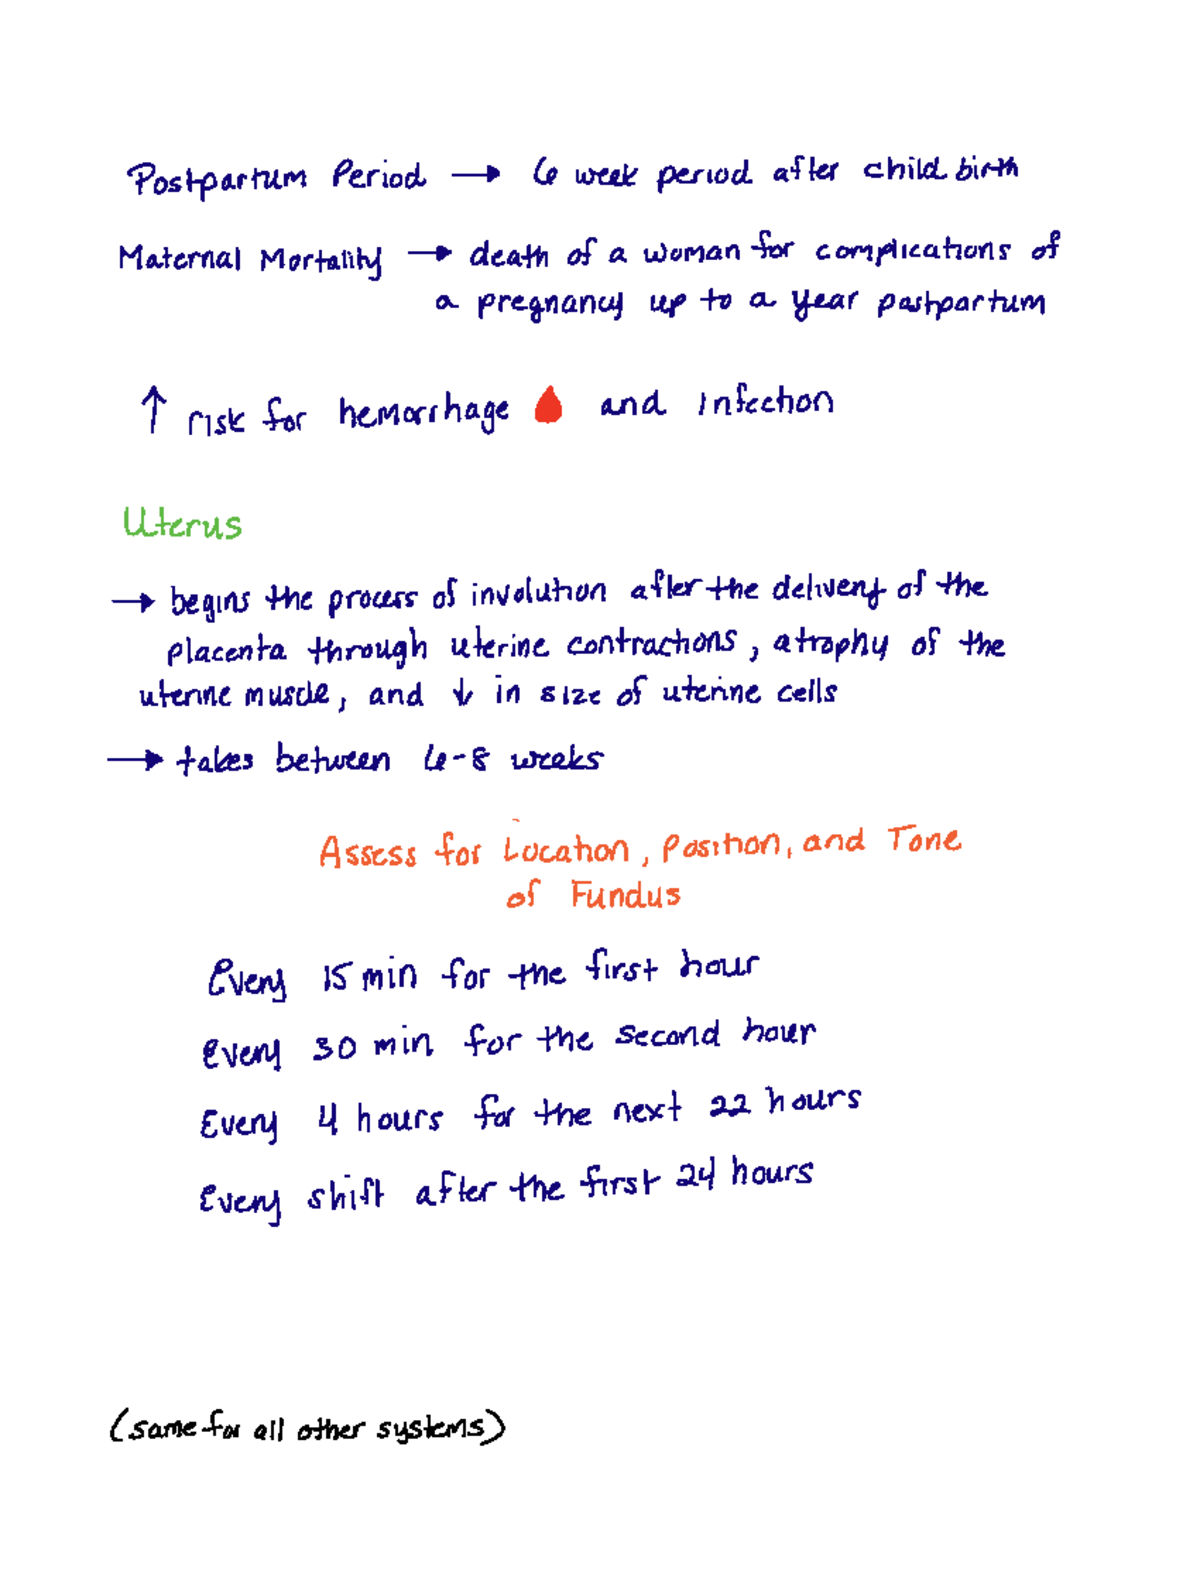 Postpartum Period → 6 week period after child birth
Maternal Mortality → death of a woman for complications of
a pregnancy up to a year postpartum
↑ risk for hemorrhage 🩸 and infection
Uterus
→ begins the process of involution after the delivery of the
placenta through uterine contractions, atrophy of the
uterine muscle, and ↓ in size of uterine cells
→ takes between 6-8 weeks
Assess for Location, Position, and Tone
of Fundus
Every 15 min for the first hour
Every 30 min for the second hour
Every 4 hours for the next 22 hours
Every shift after the first 24 hours
(same for all other systems)